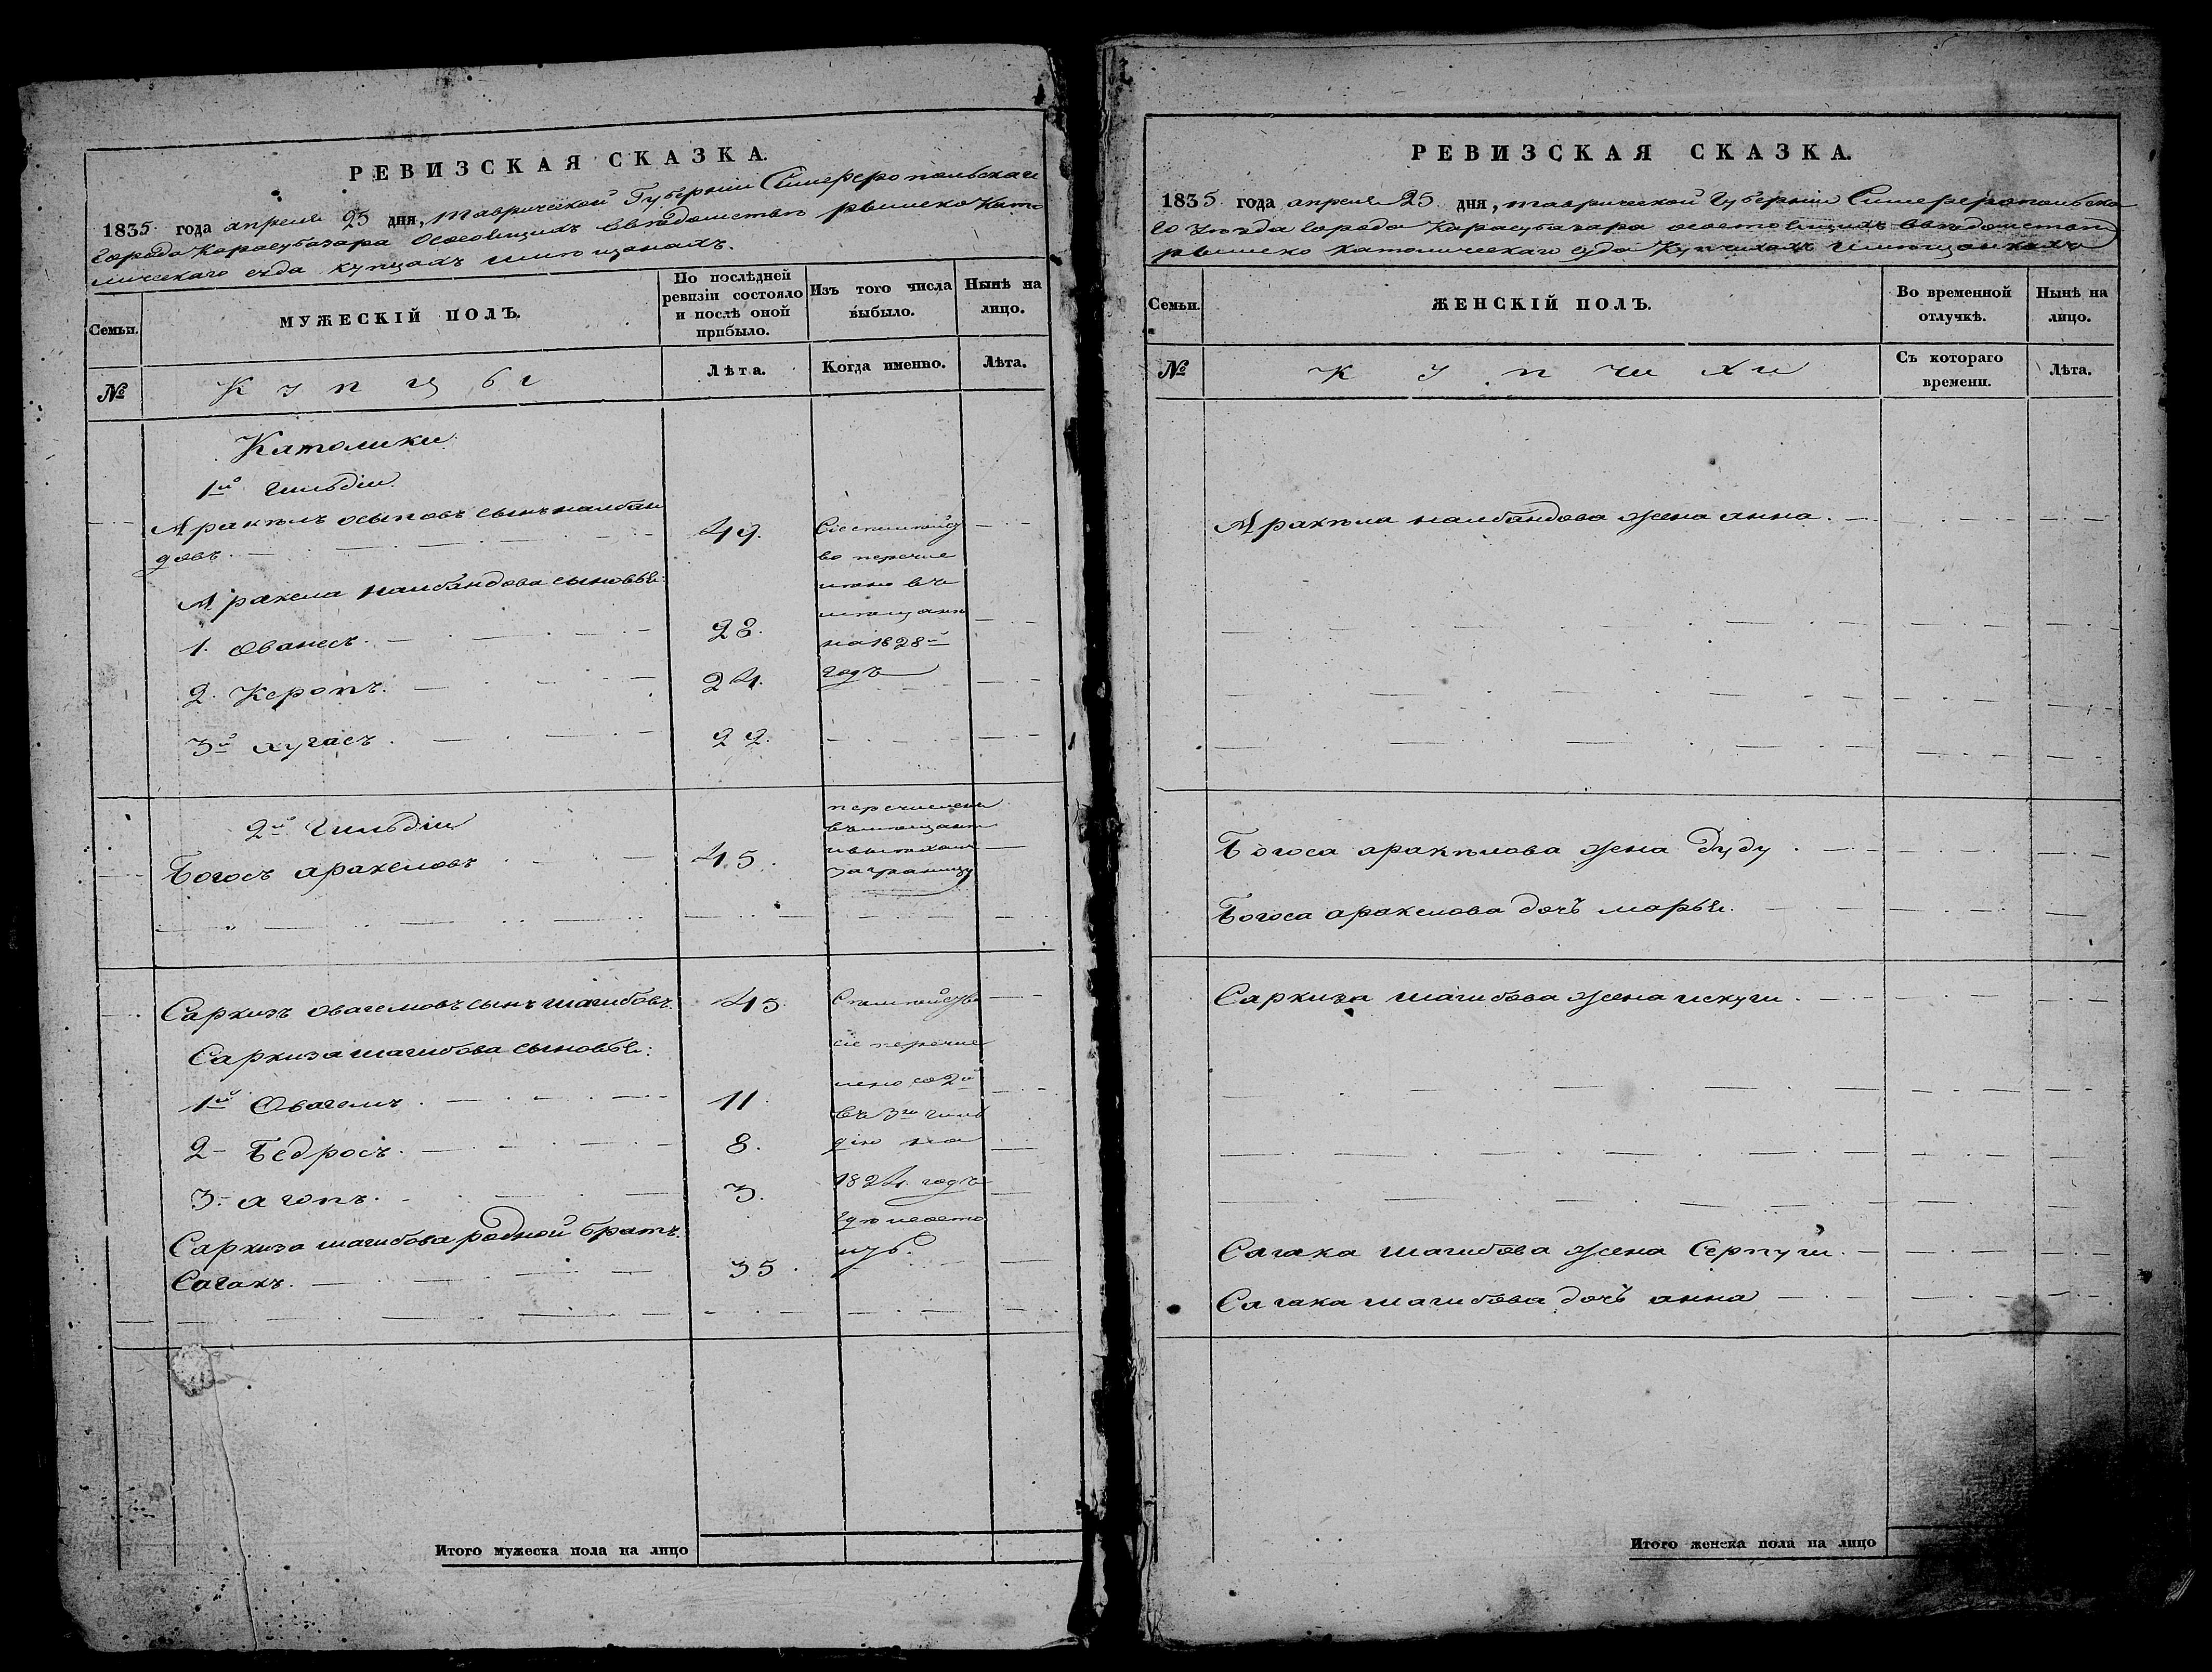 РЕВИЗСКАЯ СКАЗКА.
1835 года апреля 25 дня, таврической Губернии Симферопольскаго
Города Карасубазара ососовщихъ въ ведомстве римско като
лическаго суда купцахъ и мещанахъ.
Семьи.
МУЖЕСКІЙ ПОЛЪ.
По послѣдней ревизіи состояло и послѣ оной прибыло.
Изъ того числа выбыло.
Нынѣ на лицо.
№
Купцы
Лѣта.
Когда именно.
Лѣта.
Католики
1й гильдіи.
Аракелъ осыповъ сынъ налбан
довъ. 49.
Сіе семейст
во перечис
лено въ
мещане
на 1828й
годъ
Аракела налбандова сыновья:
1. Ованесъ. 28.
2. Керопъ. 24.
3й хугасъ. 22.
2й Гильдіи
Богосъ аракеловъ 45.
перечисленъ
въ мещане
и выехалъ
за границу
Саркизъ овагемовъ сынъ шагибовъ. 45
Саркиза шагибова сыновья:
1й Овагемъ. 11.
2- Бедросъ. 8.
3- агопъ. 3.
Саркиза шагибова родной братъ.
Сагакъ. 35.
Семейство
сіе перечис
лено со 2й
въ 3ю гиль
дію на
1824. годъ
Итого мужеска пола на лицо
РЕВИЗСКАЯ СКАЗКА.
1835 года апреля 25 дня, таврической Губернии Симферопольска
го уезда города Карасубазара въ ведомстве
римско католическаго суда Купчихахъ и мещанкахъ
Семьи.
ЖЕНСКІЙ ПОЛЪ.
Во временной отлучкѣ.
Нынѣ на лицо.
№
Купчихи
Съ котораго времени.
Лѣта.
Аракела налбандова жена анна.
Богоса аракелова жена Дуду.
Богоса аракелова дочь марья.
Саркиза шагибова жена искуги.
Сагака шагибова жена Серпуги.
Сагака шагибова дочь анна
Итого женска пола на лицо